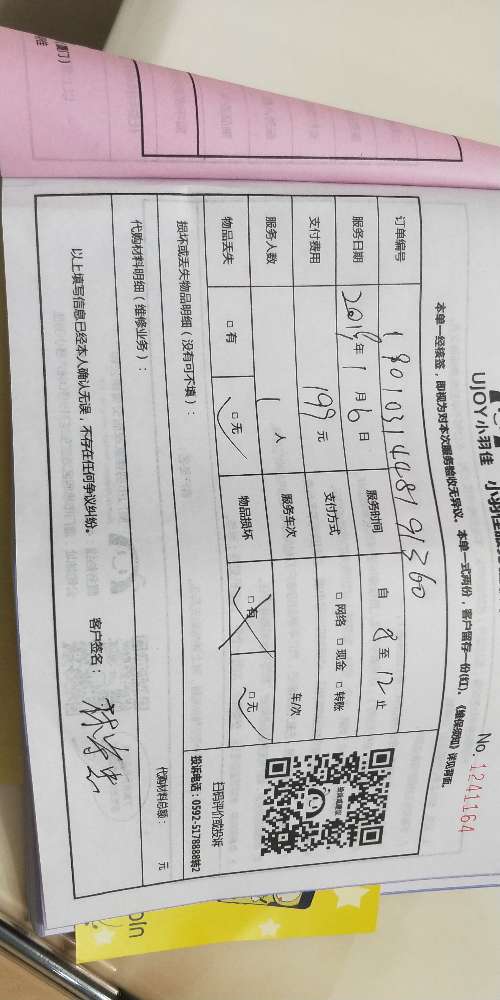 UJOY小羽佳
No. 1241164
本单一经核签，即视为对本次服务验收无异议。本单一式两份，客户留存一份(红)。《维保须知》详见背面。
订单编号 180103144819 1360
服务日期 2018年 1 月 6 日 服务时间 自 8 至 12 止
支付费用 199 元 支付方式 □ 网络 □ 现金 □ 转账
服务人数 1 人 服务车次 车/次
物品丢失 □ 有 □ 无 物品损坏 □ 有 □ 无
扫码评价或投诉
投诉电话：0592-5178888转2
损坏或丢失物品明细（没有可不填）：
代购材料明细（维修业务）： 代购材料总额： 元
以上填写信息已经本人确认无误，不存在任何争议纠纷。 客户签名：